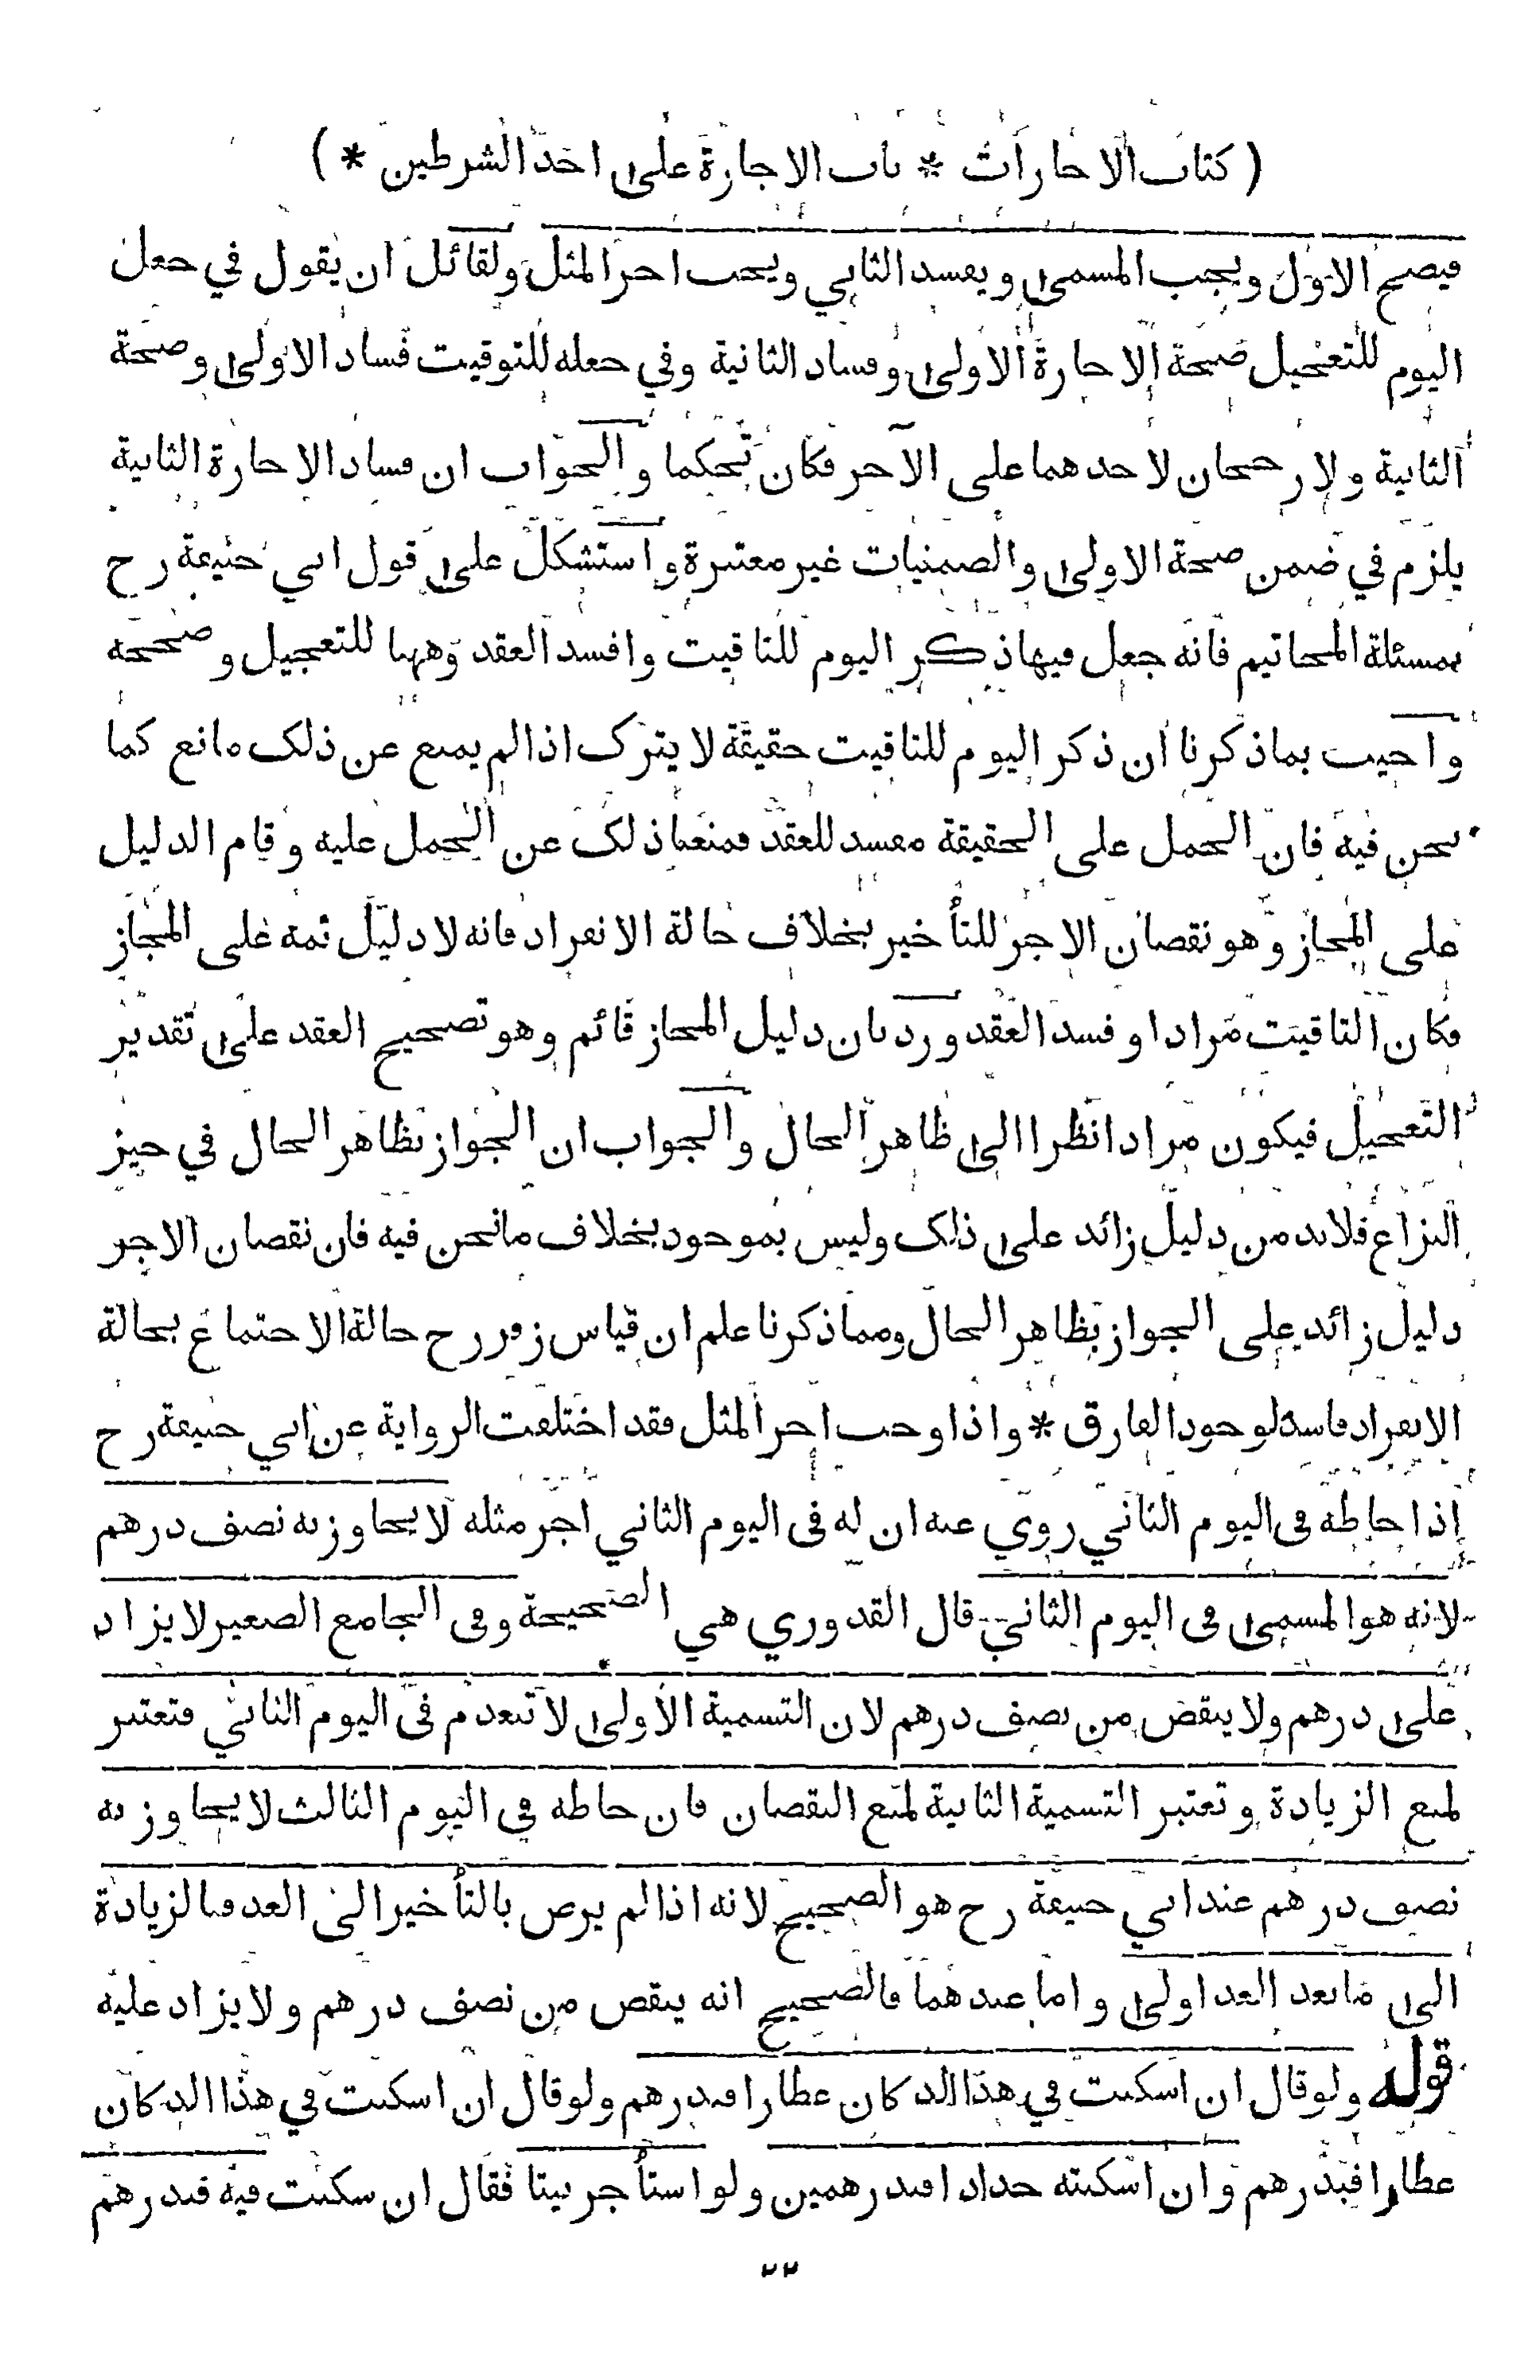 ( كتاب الاجارات * باب الاجارة على احد الشرطين * )
فيصح الاول ويجب المسمى ويفسد الثاني ويجب اجر المثل ولقائل ان يقول في جعل
اليوم للتعجيل صحة الاجارة الاولى وفساد الثانية وفي جعله للتوقيت فساد الاولى وصحة
الثانية ولا رجحان لاحدهما على الآخر فكان تحكما والجواب ان فساد الاجارة الثانية
يلزم في ضمن صحة الاولى والضمنيات غير معتبرة واستشكل على قول ابي حنيفة رح
بمسئلة المخاتيم فانه جعل فيها ذكر اليوم للتاقيت وافسد العقد وههنا للتعجيل وصححه
واجيب بما ذكرنا ان ذكر اليوم للتاقيت حقيقة لا يترك اذا لم يمنع عن ذلك مانع كما
نحن فيه فان الحمل على الحقيقة مفسد للعقد فمنعنا ذلك عن الحمل عليه وقام الدليل
على المجاز وهو نقصان الاجر للتأخير بخلاف حالة الانفراد فانه لا دليل ثمه على المجاز
فكان التاقيت مرادا وفسد العقد ورد بان دليل المجاز قائم وهو تصحيح العقد على تقدير
التعجيل فيكون مرادا نظرا الى ظاهر الحال والجواب ان الجواز بظاهر الحال في حيز
النزاع فلابد من دليل زائد على ذلك وليس بموجود بخلاف ما نحن فيه فان نقصان الاجر
دليل زائد على الجواز بظاهر الحال ومما ذكرنا علم ان قياس زفر رح حالة الاجتماع بحالة
الانفراد فاسد لوجود الفارق * واذا وجب اجر المثل فقد اختلفت الرواية عن ابي حنيفة رح
اذا خاطه في اليوم الثاني روي عنه ان له في اليوم الثاني اجر مثله لا يجاوز به نصف درهم
لانه هو المسمى في اليوم الثاني قال القدوري هي الصحيحة وفي الجامع الصغير لا يزاد
على درهم ولا ينقض من نصف درهم لان التسمية الاولى لا تنعدم في اليوم الثاني فتعتبر
لمنع الزيادة وتعتبر التسمية الثانية لمنع النقصان فان خاطه في اليوم الثالث لا يجاوز به
نصف درهم عند ابي حنيفة رح هو الصحيح لانه اذا لم يرض بالتأخير الى الغد فبالزيادة
الى ما بعد الغد اولى واما عندهما فالصحيح انه ينقص من نصف درهم ولا يزاد عليه
قوله ولو قال ان اسكنت في هذا الدكان عطارا فبدرهم ولو قال ان اسكنت في هذا الدكان
عطارا فبدرهم وان اسكنته حدادا فبدرهمين ولو استأجر بيتا فقال ان سكنت فيه فبدرهم
٢٢